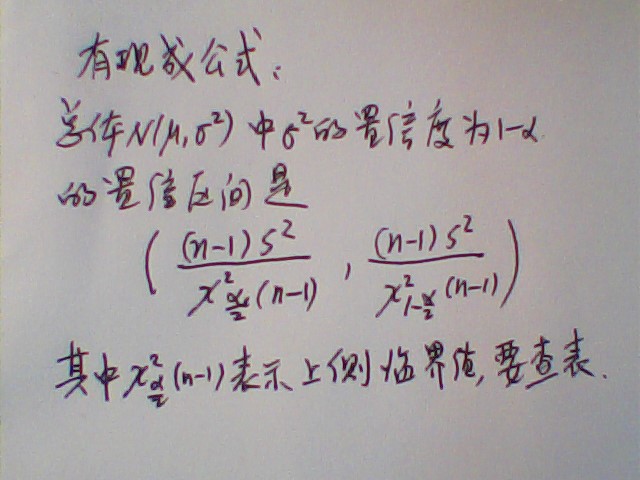 有现成公式：
总体N(μ,σ²)中σ²的置信度为1-α
的置信区间是
( (n-1)S² / χ²_{α/2}(n-1) , (n-1)S² / χ²_{1-α/2}(n-1) )
其中χ²_{α/2}(n-1)表示上侧临界值,要查表.